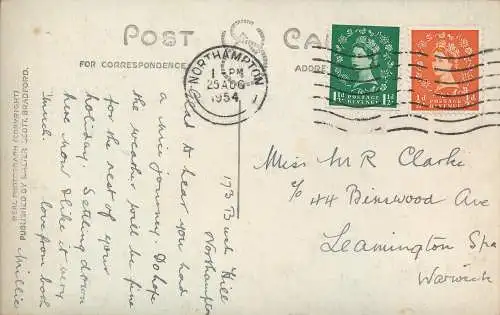 POST CARD
FOR CORRESPONDENCE
ADDRE
NORTHAMPTON
1 PM
25 AUG
1954
POSTAGE
REVENUE
1½D 1½D
POSTAGE
REVENUE
½d ½d
173 Bush Hill
Northampton
Glad to hear you had
a nice journey. Do hope
the weather will be fine
for the rest of your
holiday. Settling down
here now & like it very
much. love from both
Millie
Miss M R Clarke
c/o 44 Binswood Ave
Leamington Spa
Warwick
REAL PHOTOGRAPH
PUBLISHED BY